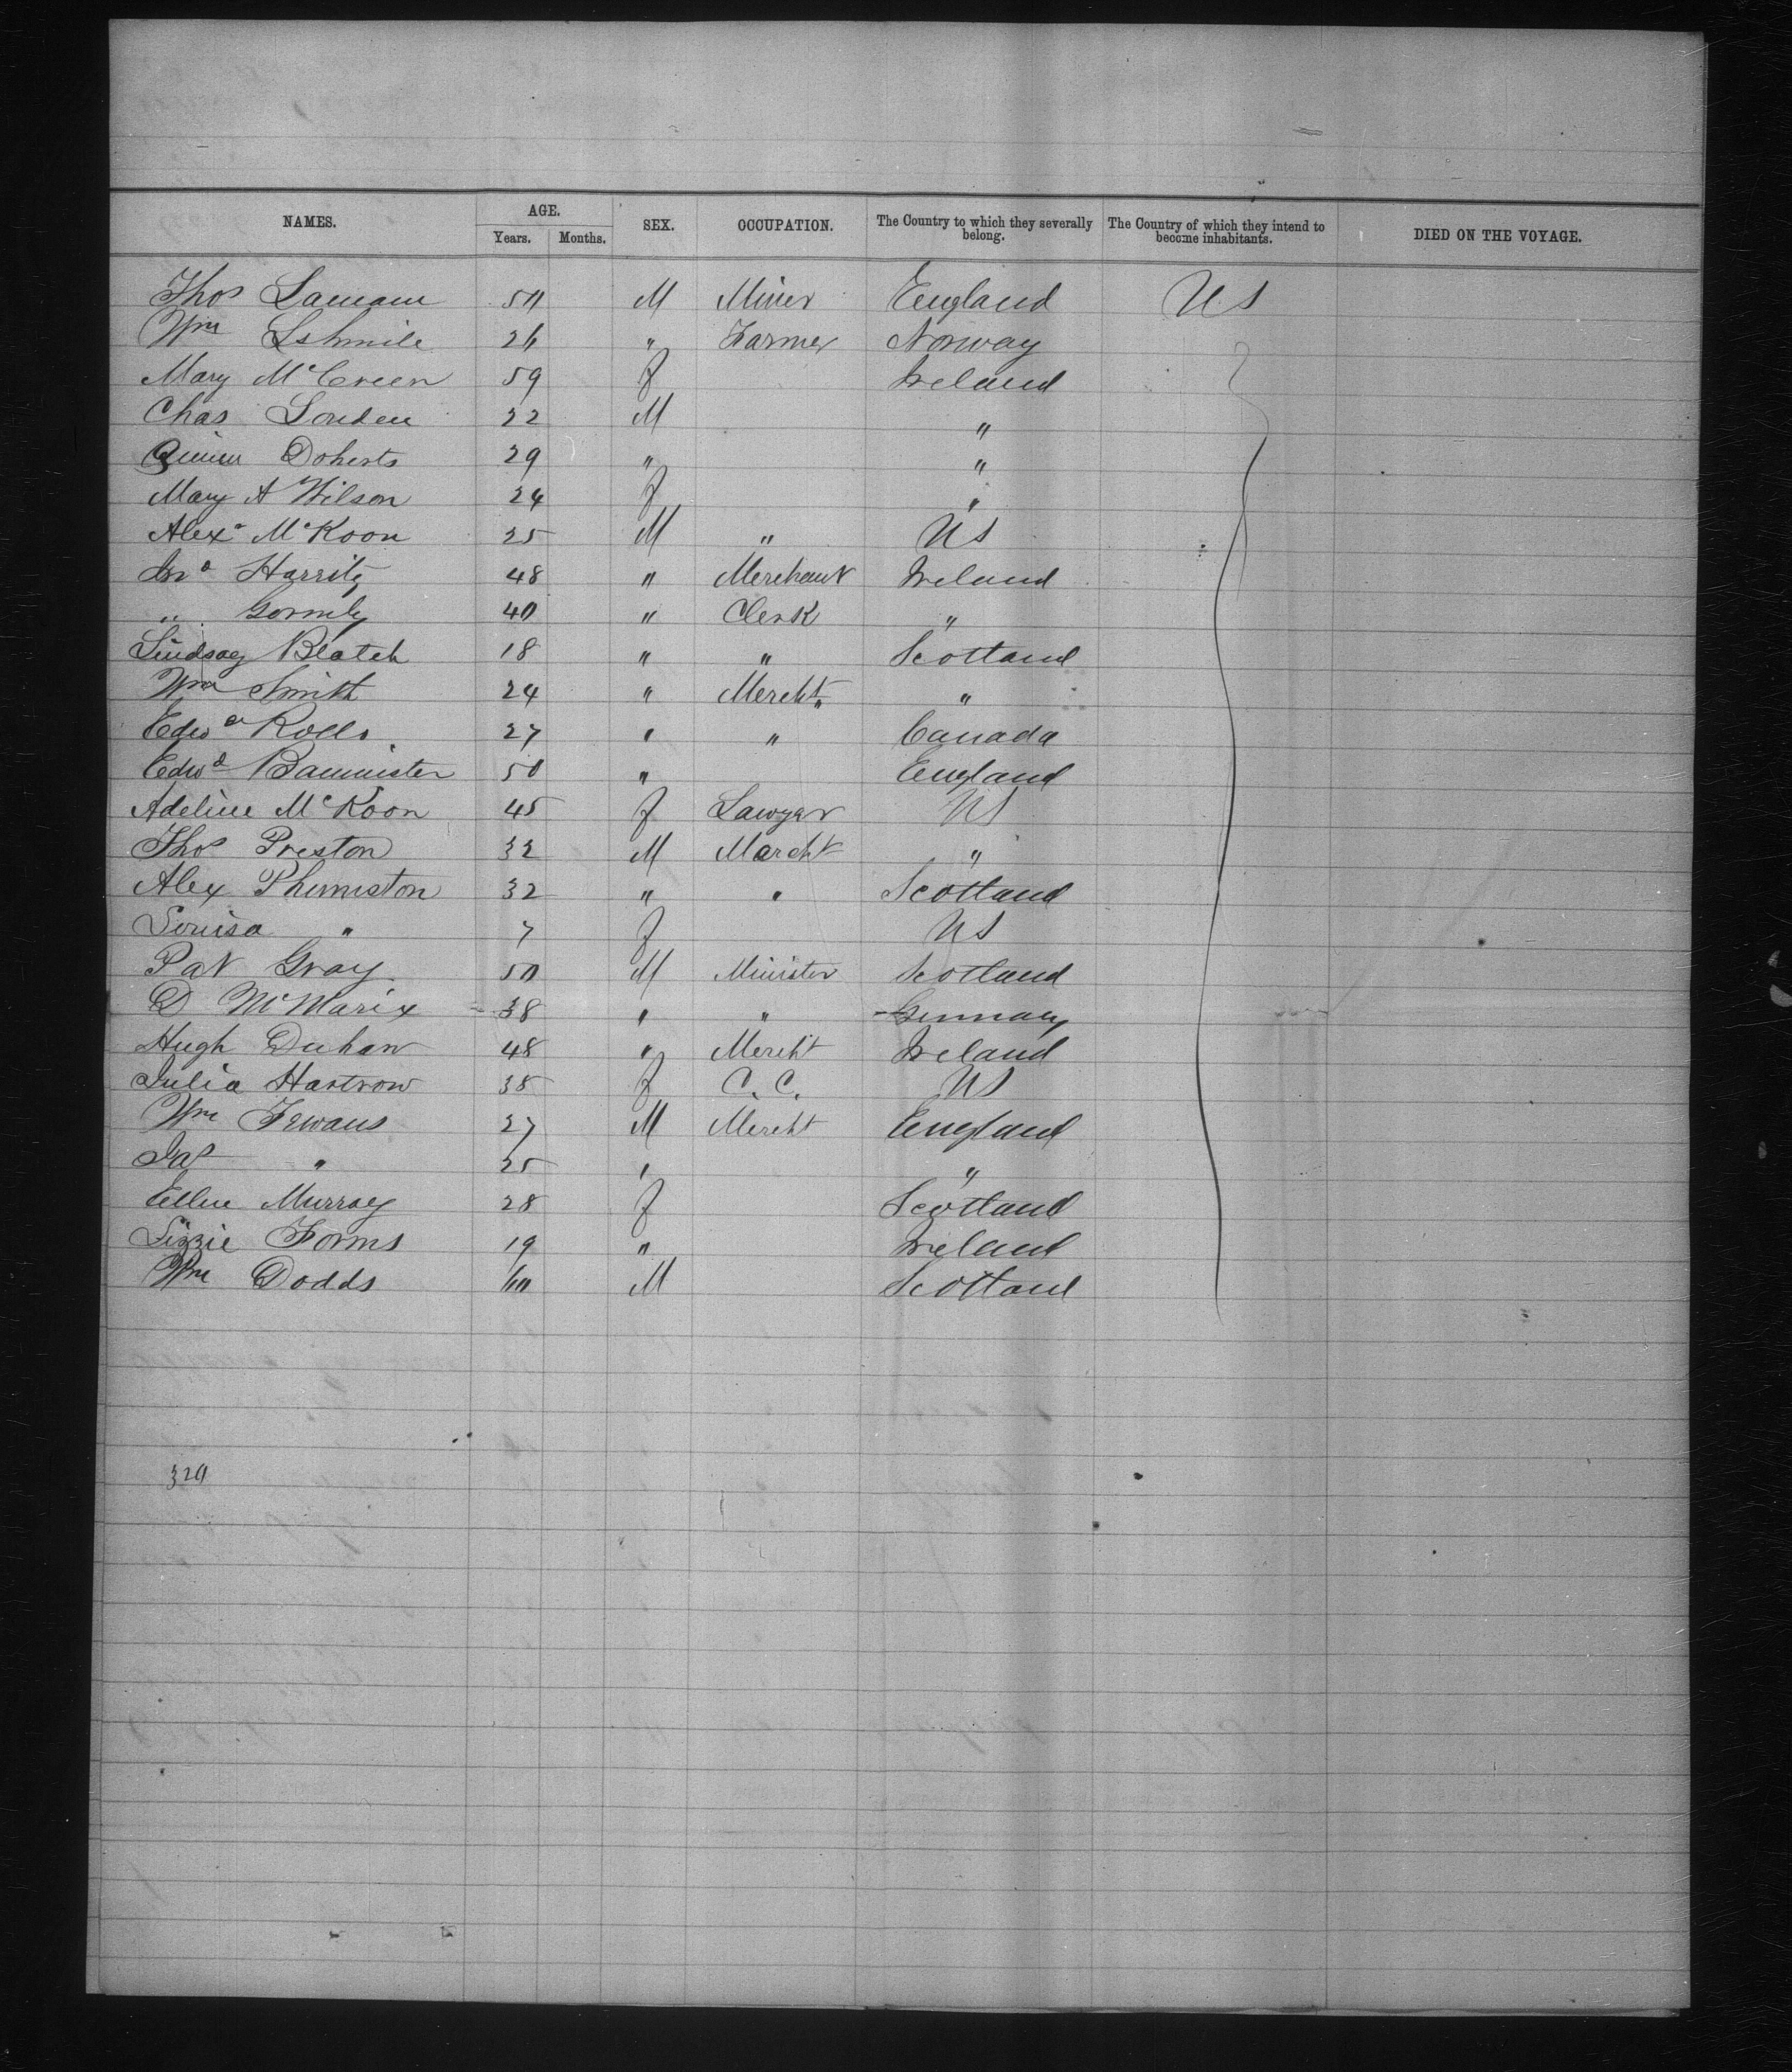 NAMES. AGE. SEX. OCCUPATION. The Country to which they severally belong. The Country of which they intend to become inhabitants. DIED ON THE VOYAGE.
Years. Months.
Thos Lamam 50 M Miner England US
Wm 26 " Farmer Norway
Mary McCreen 59 f Ireland
Chas Louden 22 M "
Doherts 29 " "
Mary A Wilson 24 f "
Alexr McKoon 25 M " US
Jno Harrity 48 " Merchant Ireland
" Gormly 40 " Clerk "
Lindsay Blatch 18 " " Scotland
Wm Smith 24 " Mercht "
Edwd Rolls 27 " " Canada
Edwd Bannister 50 " England
Adeline McKoon 45 f Lawyer US
Thos Preston 32 M Mercht "
Alex Phimiston 32 " " Scotland
Louisa " 7 f US
Pat Gray 50 M Minister Scotland
D McMarix 38 " " Germany
Hugh Duhan 48 " Mercht Ireland
Julia Hartrow 38 f C. C. US
Wm Fewans 27 M Mercht England
Jas " 25 " "
Ellen Murray 28 f Scotland
Lizzie Forms 19 " Ireland
Wm Dodds 60 M Scotland
320